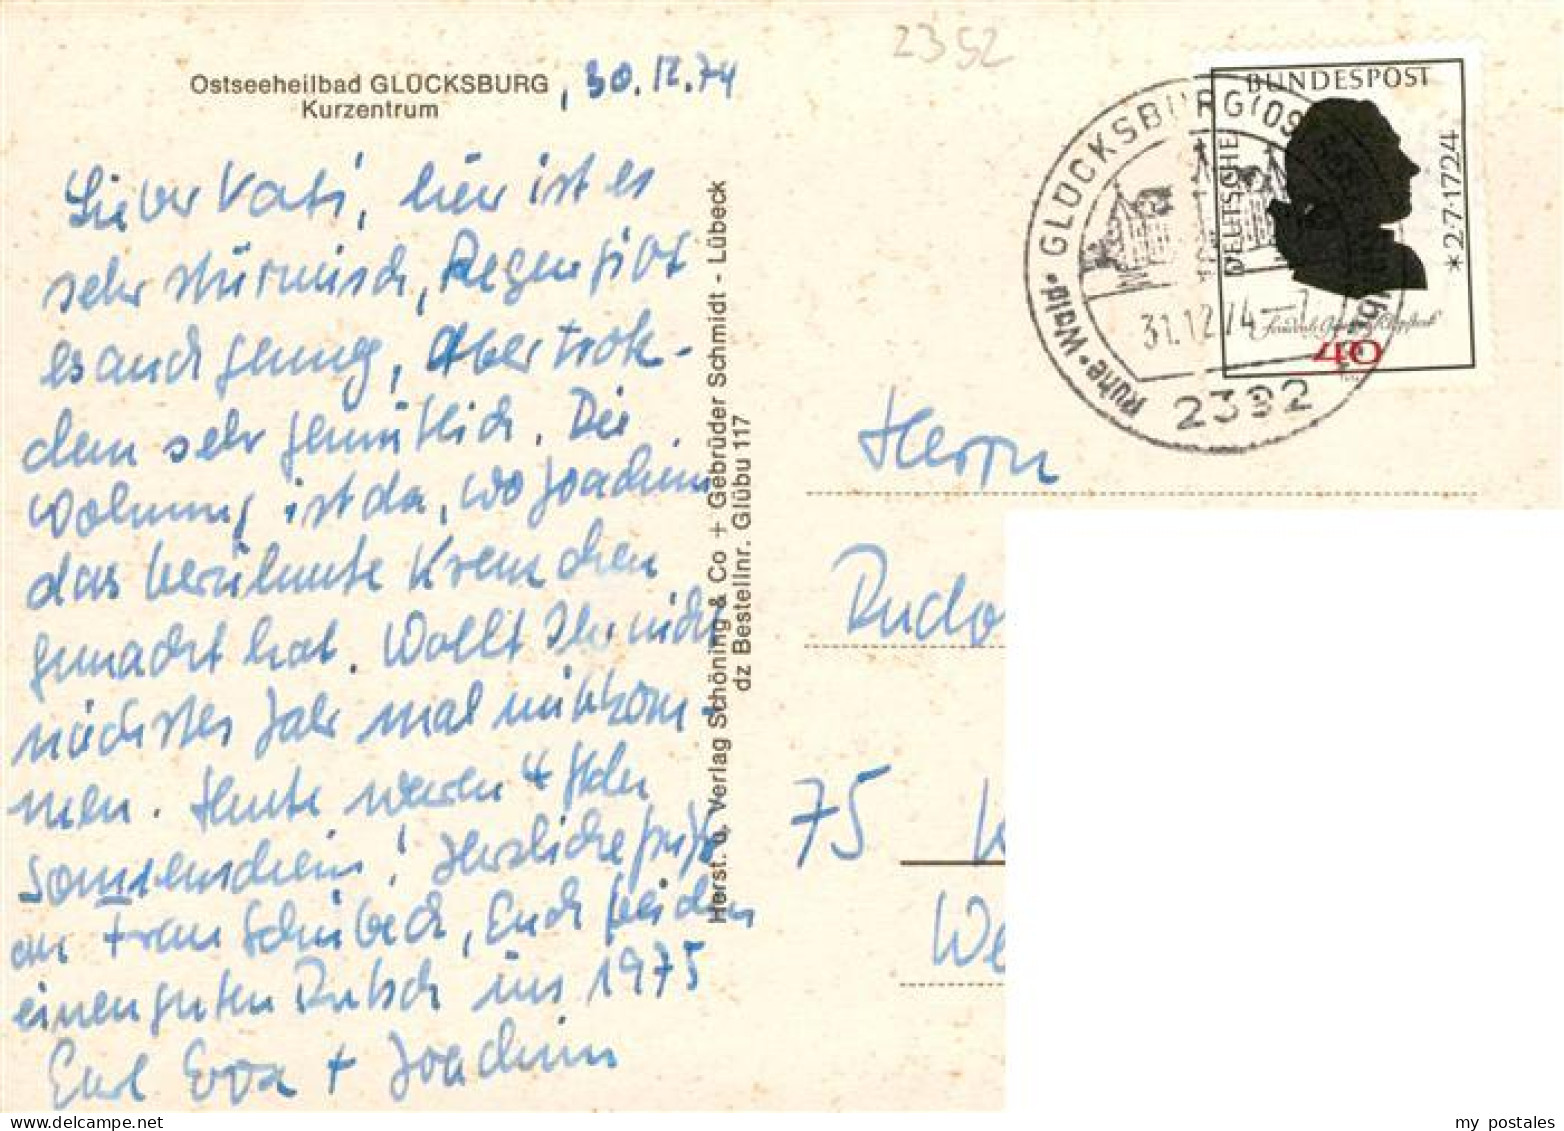 2392
Ostseeheilbad GLÜCKSBURG
Kurzentrum
, 30.12.74
Lieber Vati, hier ist es
sehr stürmisch, Regen gibt
es auch genug, Aber trotz-
dem sehr gemütlich. Die
Wohnung ist da, wo Joachim
das berühmte Kreuzchen
gemacht hat. Wollt Ihr nicht
nächstes Jahr mal mitkom-
men. Heute waren 4 Stdn
Sonnenschein! Herzliche Grüße
an Frau Schübeck, Euch beiden
einen guten Rutsch ins 1975
Eure Eva + Joachim
Herst. u. Verlag Schöning & Co + Gebrüder Schmidt - Lübeck
dz Bestellnr. Glübu 117
GLÜCKSBURG (OSTSEE)
Ruhe • Wald •
31.12.74-
2392
DEUTSCHE
BUNDESPOST
* 2·7·1724
Friedrich Gottlieb Klopstock
40
Herrn
Rudo
75
We
my postales